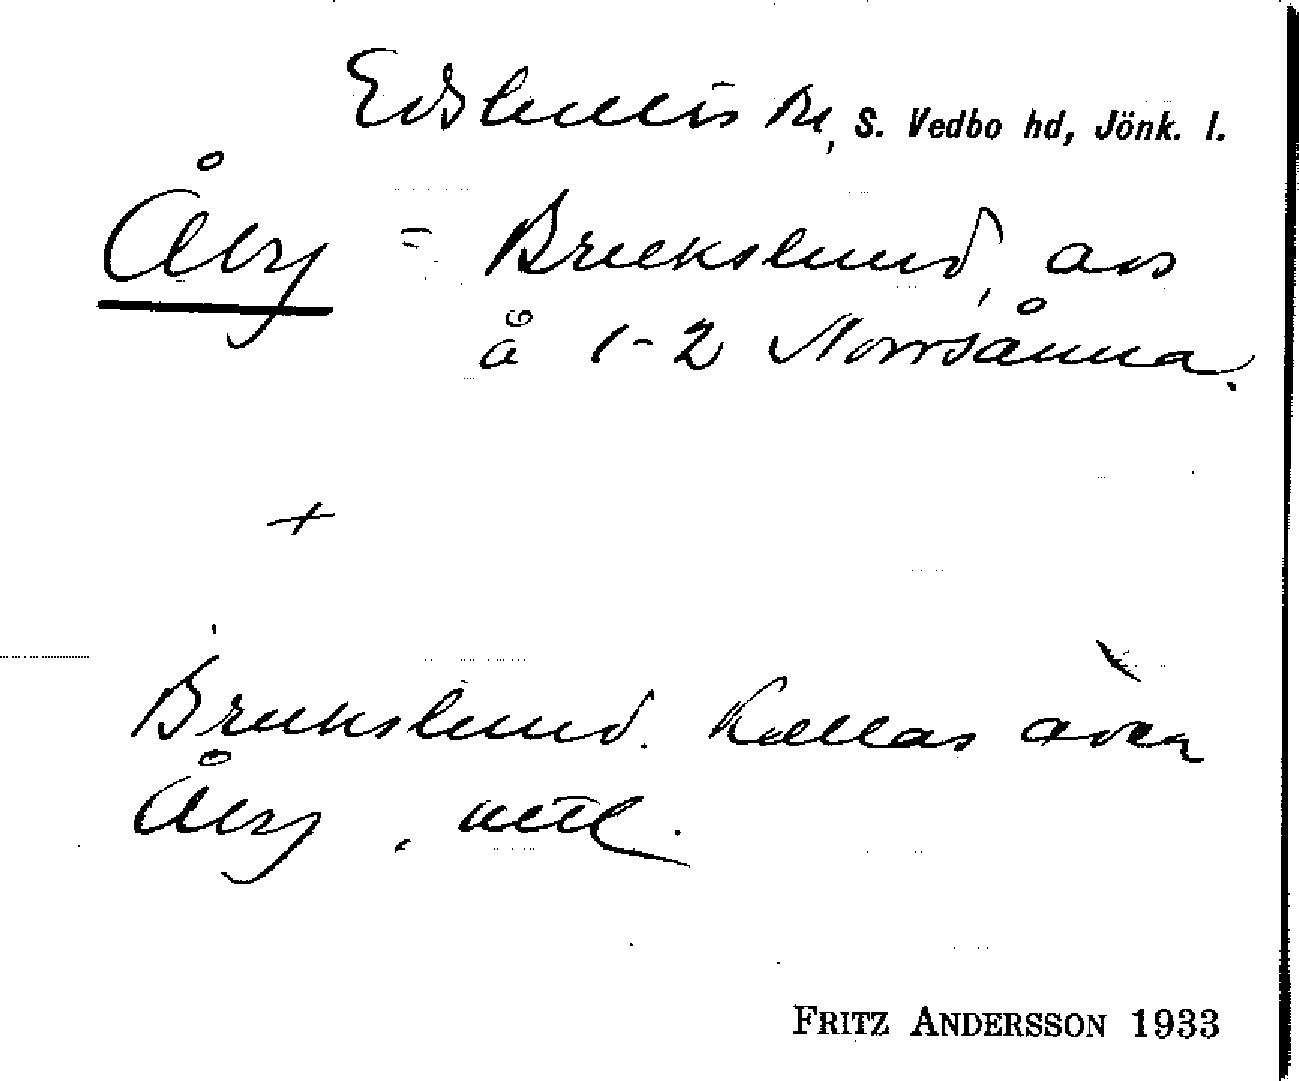 Edshults sn, S. Vedbo hd, Jönk. l.
Åby = Brukslund, avs
å 1-2 Norrsånna.
+
Brukslund. Kallas även
Åby
FRITZ ANDERSSON 1933